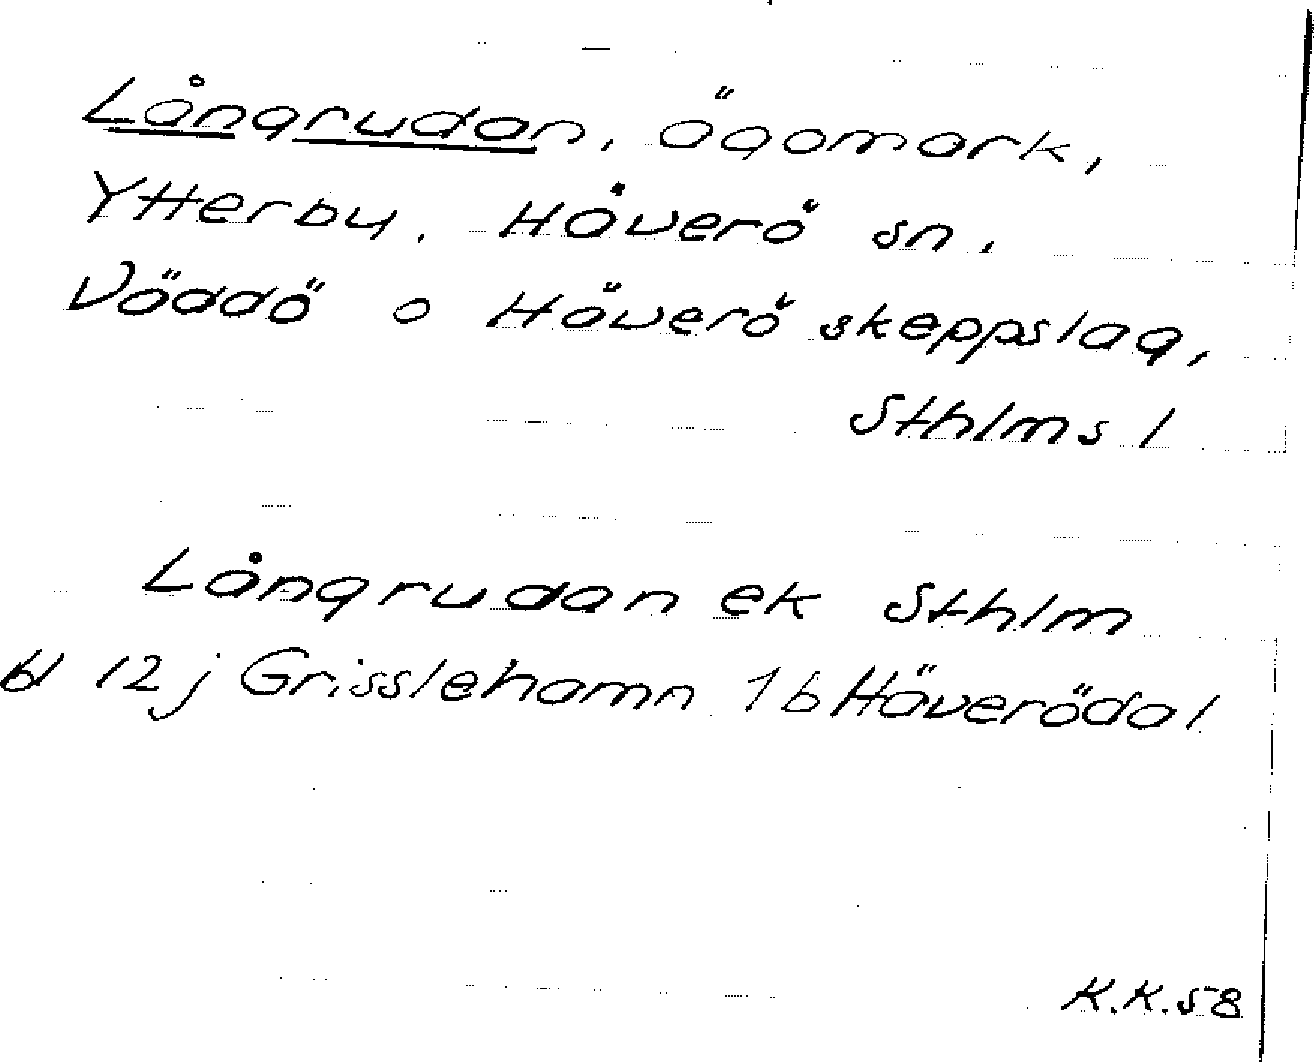 Långrudan, ägomark,
Ytterby, Häverö sn,
Väddö o Häverö skeppslag,
Sthlms l
Långrudan ek Sthlm
bl 12j Grisslehamn 1b Häverödal
K.K.58